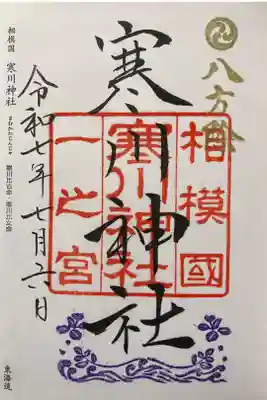 八方除
寒川神社
相模國
寒川神社
一之宮
令和七年七月六日
相模国 寒川神社
さむかわじんじゃ
寒川比古命・寒川比女命
東海道